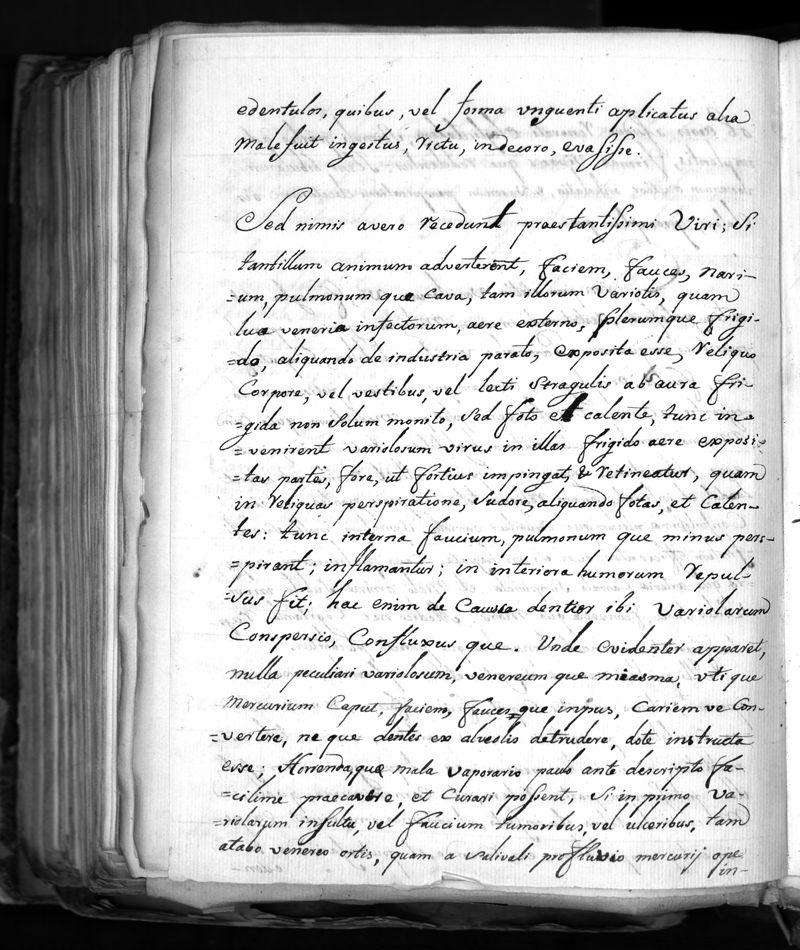 edentulos, quibus, vel forma vnguenti aplicatus alia
male fuit ingestus, victu, indecoro, evasisse.
Sed nimis avero recedunt praestantissimi Viri; Si
tantillum animum adverterent, faciem, fauces, nari-
=um, pulmonum que cava, tam illorum variolis, quam
lua veneria infectorum, aere externo, plerumque frigi-
=do, aliquando de industria parato, exposita esse, reliquo
Corpore, vel vestibus, vel lecti stragulis ab aura fri-
=gida non solum monito, sed foto et calente, tunc in=
=venirent variolosum virus in illas frigido aere exposi-
=tas partes, fore, ut fortius impingat, & retineatur, quam
in reliquas perspiratione, sudore, aliquando fotas, et Calen-
tes: tunc interna faucium, pulmonum que minus pers-
=pirant; inflamantur; in interiora humorum repul-
=sus fit; hac enim de Caussa dentior ibi variolarum
Conspersio, Confluxus que. Unde evidenter apparet,
nulla peculiari variolosum, venereum que miasma, vti que
mercurium Caput, faciem, fauces que inpus, Cariem ve Con-
=vertere, ne que dentes ex alveolis detrudere, dote instructa
esse; Horrenda que mala vaporario paulo ante descripto fa-
=cilime praecavere, et Curari possent, si in primo va-
=riolarum insultu, vel faucium tumoribus, vel ulceribus, tam
atabo venereo ortis, quam a salivali profluvio mercurij ope
in-